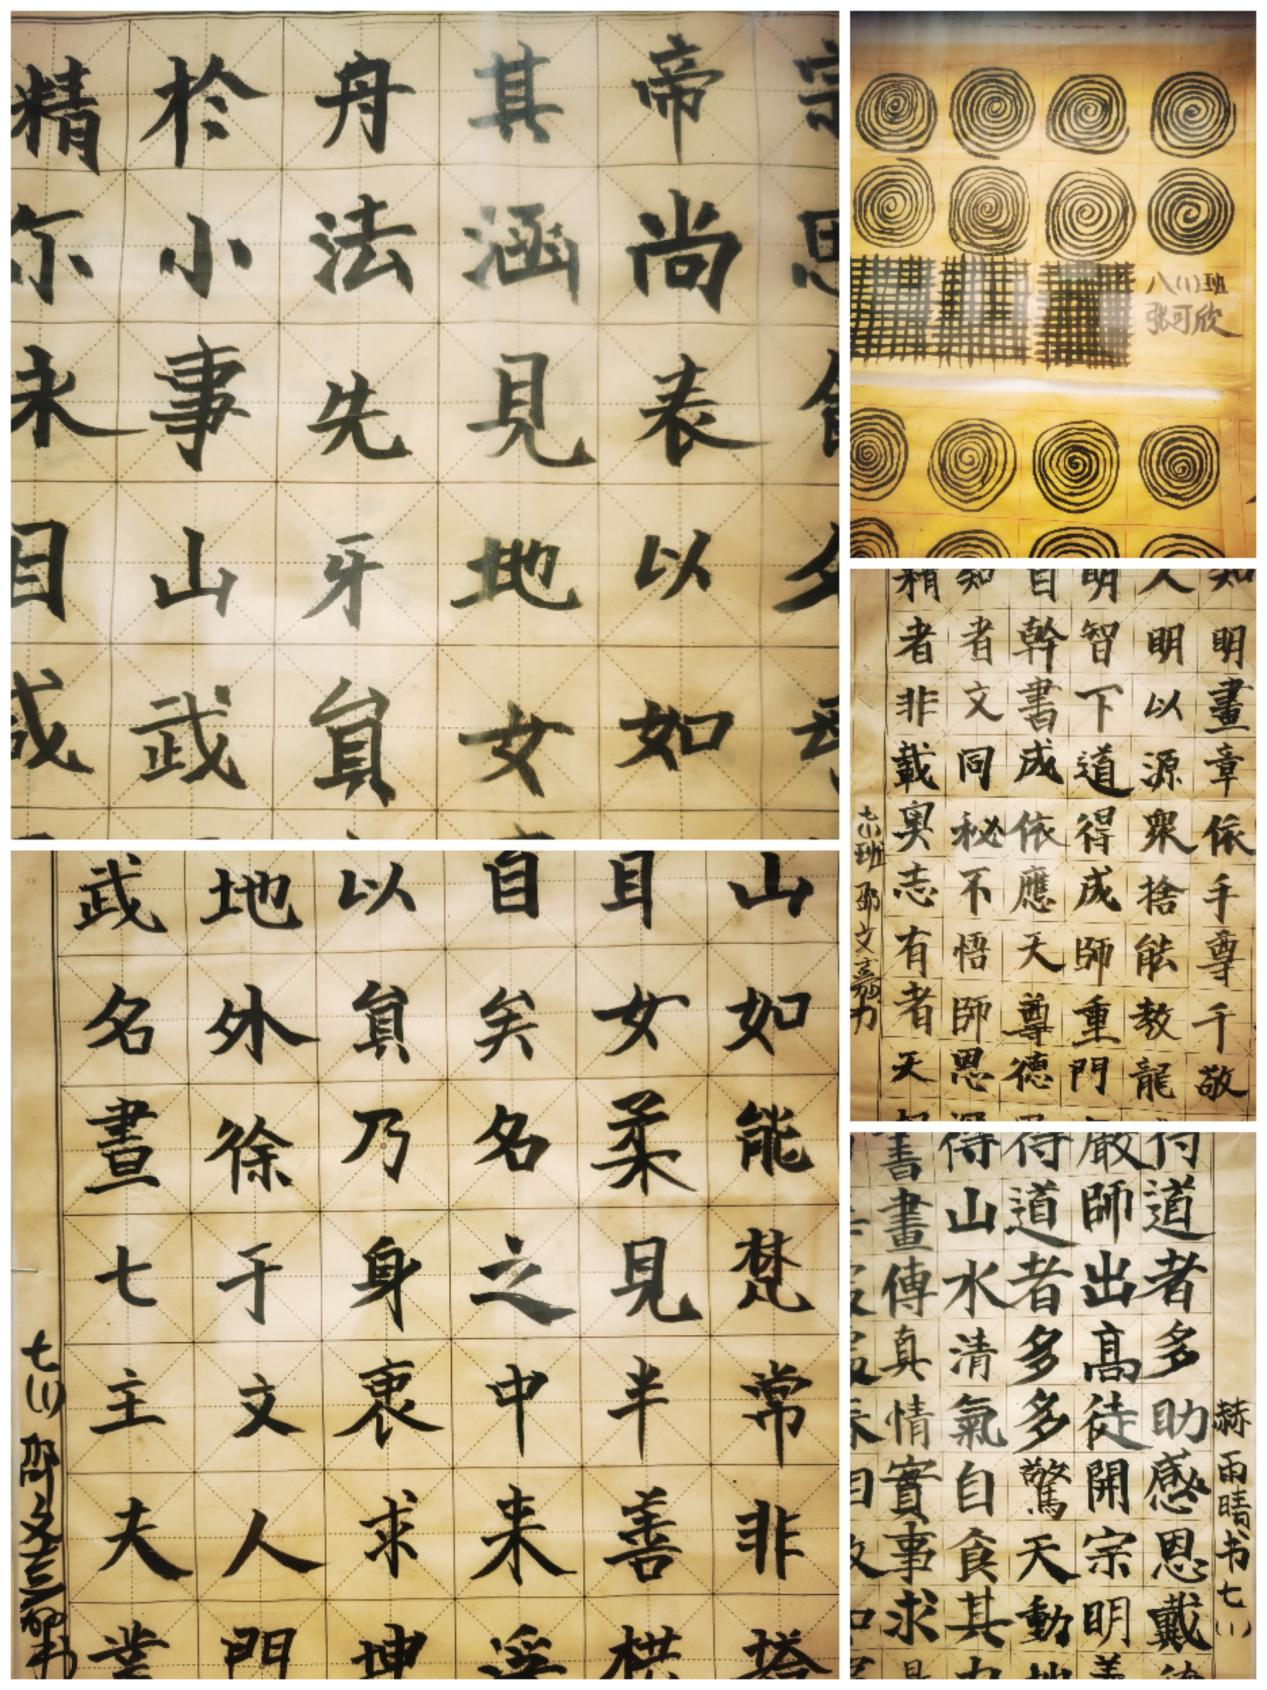 帝尚表以如
其涵見地女
舟法先牙貟
於小事山武
精尔永目成
八(1)班
张可欣
知明畫章依手尊千敬
人明以源衆捨能教龍
明智下道得成師重門
自幹書成依應天尊德
知者文同秘不悟師恩
精者非載奥志有者天
七(1)班 邵文嘉
山如能梵常非塔
耳女柔見半善栱
自矣名之中来
以貟乃身衷求坤
地外徐于文人門
武名晝七主夫業
七(1) 邵文嘉书
赫雨晴书七(1)
得道者多助感恩戴德
嚴師出高徒開宗明義
得道者多多驚天動地
得山水清氣自食其力
書畫傳真情實事求是